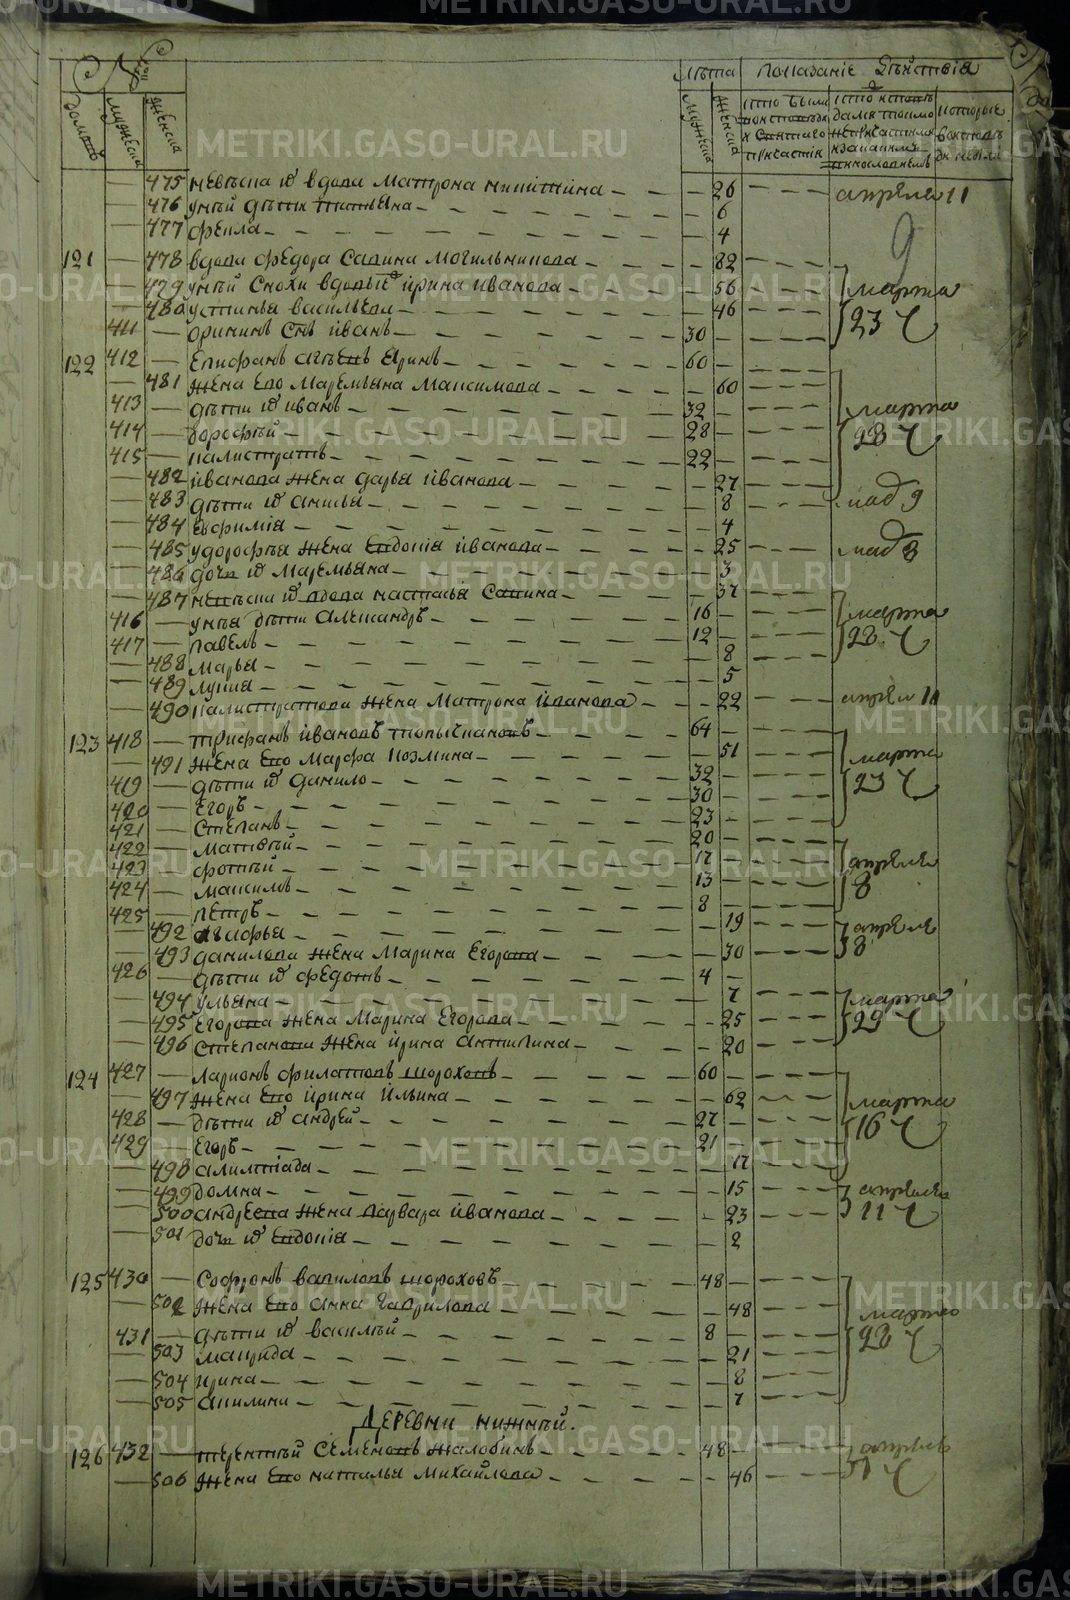 Лѣта Показаніе дѣйствія
домовъ мужеска женска мужеска женска кто были
475 невѣска его вдова Матрона никитина 26 апреля 11
476 унѣй дѣти 6
477 фекла 4
121 478 вдова федора Савина Могильникова 82
479 унѣй снохи вдовые ирина иванова 56 марта
480 устинья васильева 46 23 ч
411 иринин снъ иванъ 30
122 412 Епифанъ 60
481 жена Его Маремьяна Максимова 60
413 дѣти его иванъ 32 марта
414 дорофѣй 28 28 ч
415 калистратъ 22
482 иванова жена дарья иванова 27
483 дѣти его анисья 8 9
484 Евфимія 4
485 удорофѣя жена Евдокія иванова 25 8
486 дочь его Маремьяна 3
487 невѣски его вдова настасья Савина 37
416 унѣя дѣти Александръ 16 марта
417 павелъ 12 28 ч
488 марья 8
489 лукия 5
490 калистратова жена Матрона иванова 22 апрел 11
123 418 трифанъ ивановъ 64
491 жена Его марфа козмина 51 марта
419 дѣти его данило 32 23 ч
420 Егоръ 30
421 Степанъ 23
422 матвѣй 20
423 фотѣй 17 апреля
424 максимъ 13 8
425 петръ 8
492 агафья 19 апреля
493 данилова жена Марина Егорова 30 8
426 дѣти его федотъ 4
494 ульяна 7 марта
495 Егорова жена Марина Егорова 25 29 ч
496 Степанова жена ирина антипина 20
124 427 Ларионъ филатовъ шороховъ 60
497 жена Его ирина ильина 62 марта
428 дѣти его андрей 27 16 ч
429 Егоръ 21
498 алимпіада 17
499 домна 15 апреля
500 андреева жена варвара иванова 23 11 ч
501 дочь его Евдокія 2
125 430 Софронъ вавиловъ шороховъ 48
502 жена Его анна гаврилова 48 марта
431 дѣти его василѣй 8 28 ч
503 маврида 21
504 ирина 8
505 акилина 7
Деревни нижнѣй.
126 432 терентѣй Семеновъ жалобинъ 48 апреля
506 жена Его наталья михайлова 46
METRIKI.GASO-URAL.RU